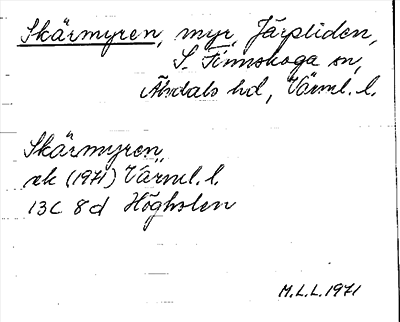 Skärmyren, myr, Järpliden,
S. Finnskoga sn,
Älvdals hd, Värml. l.
Skärmyren
ek (1971) Värml. l.
13C 8d Högholen
M.L.L. 1971